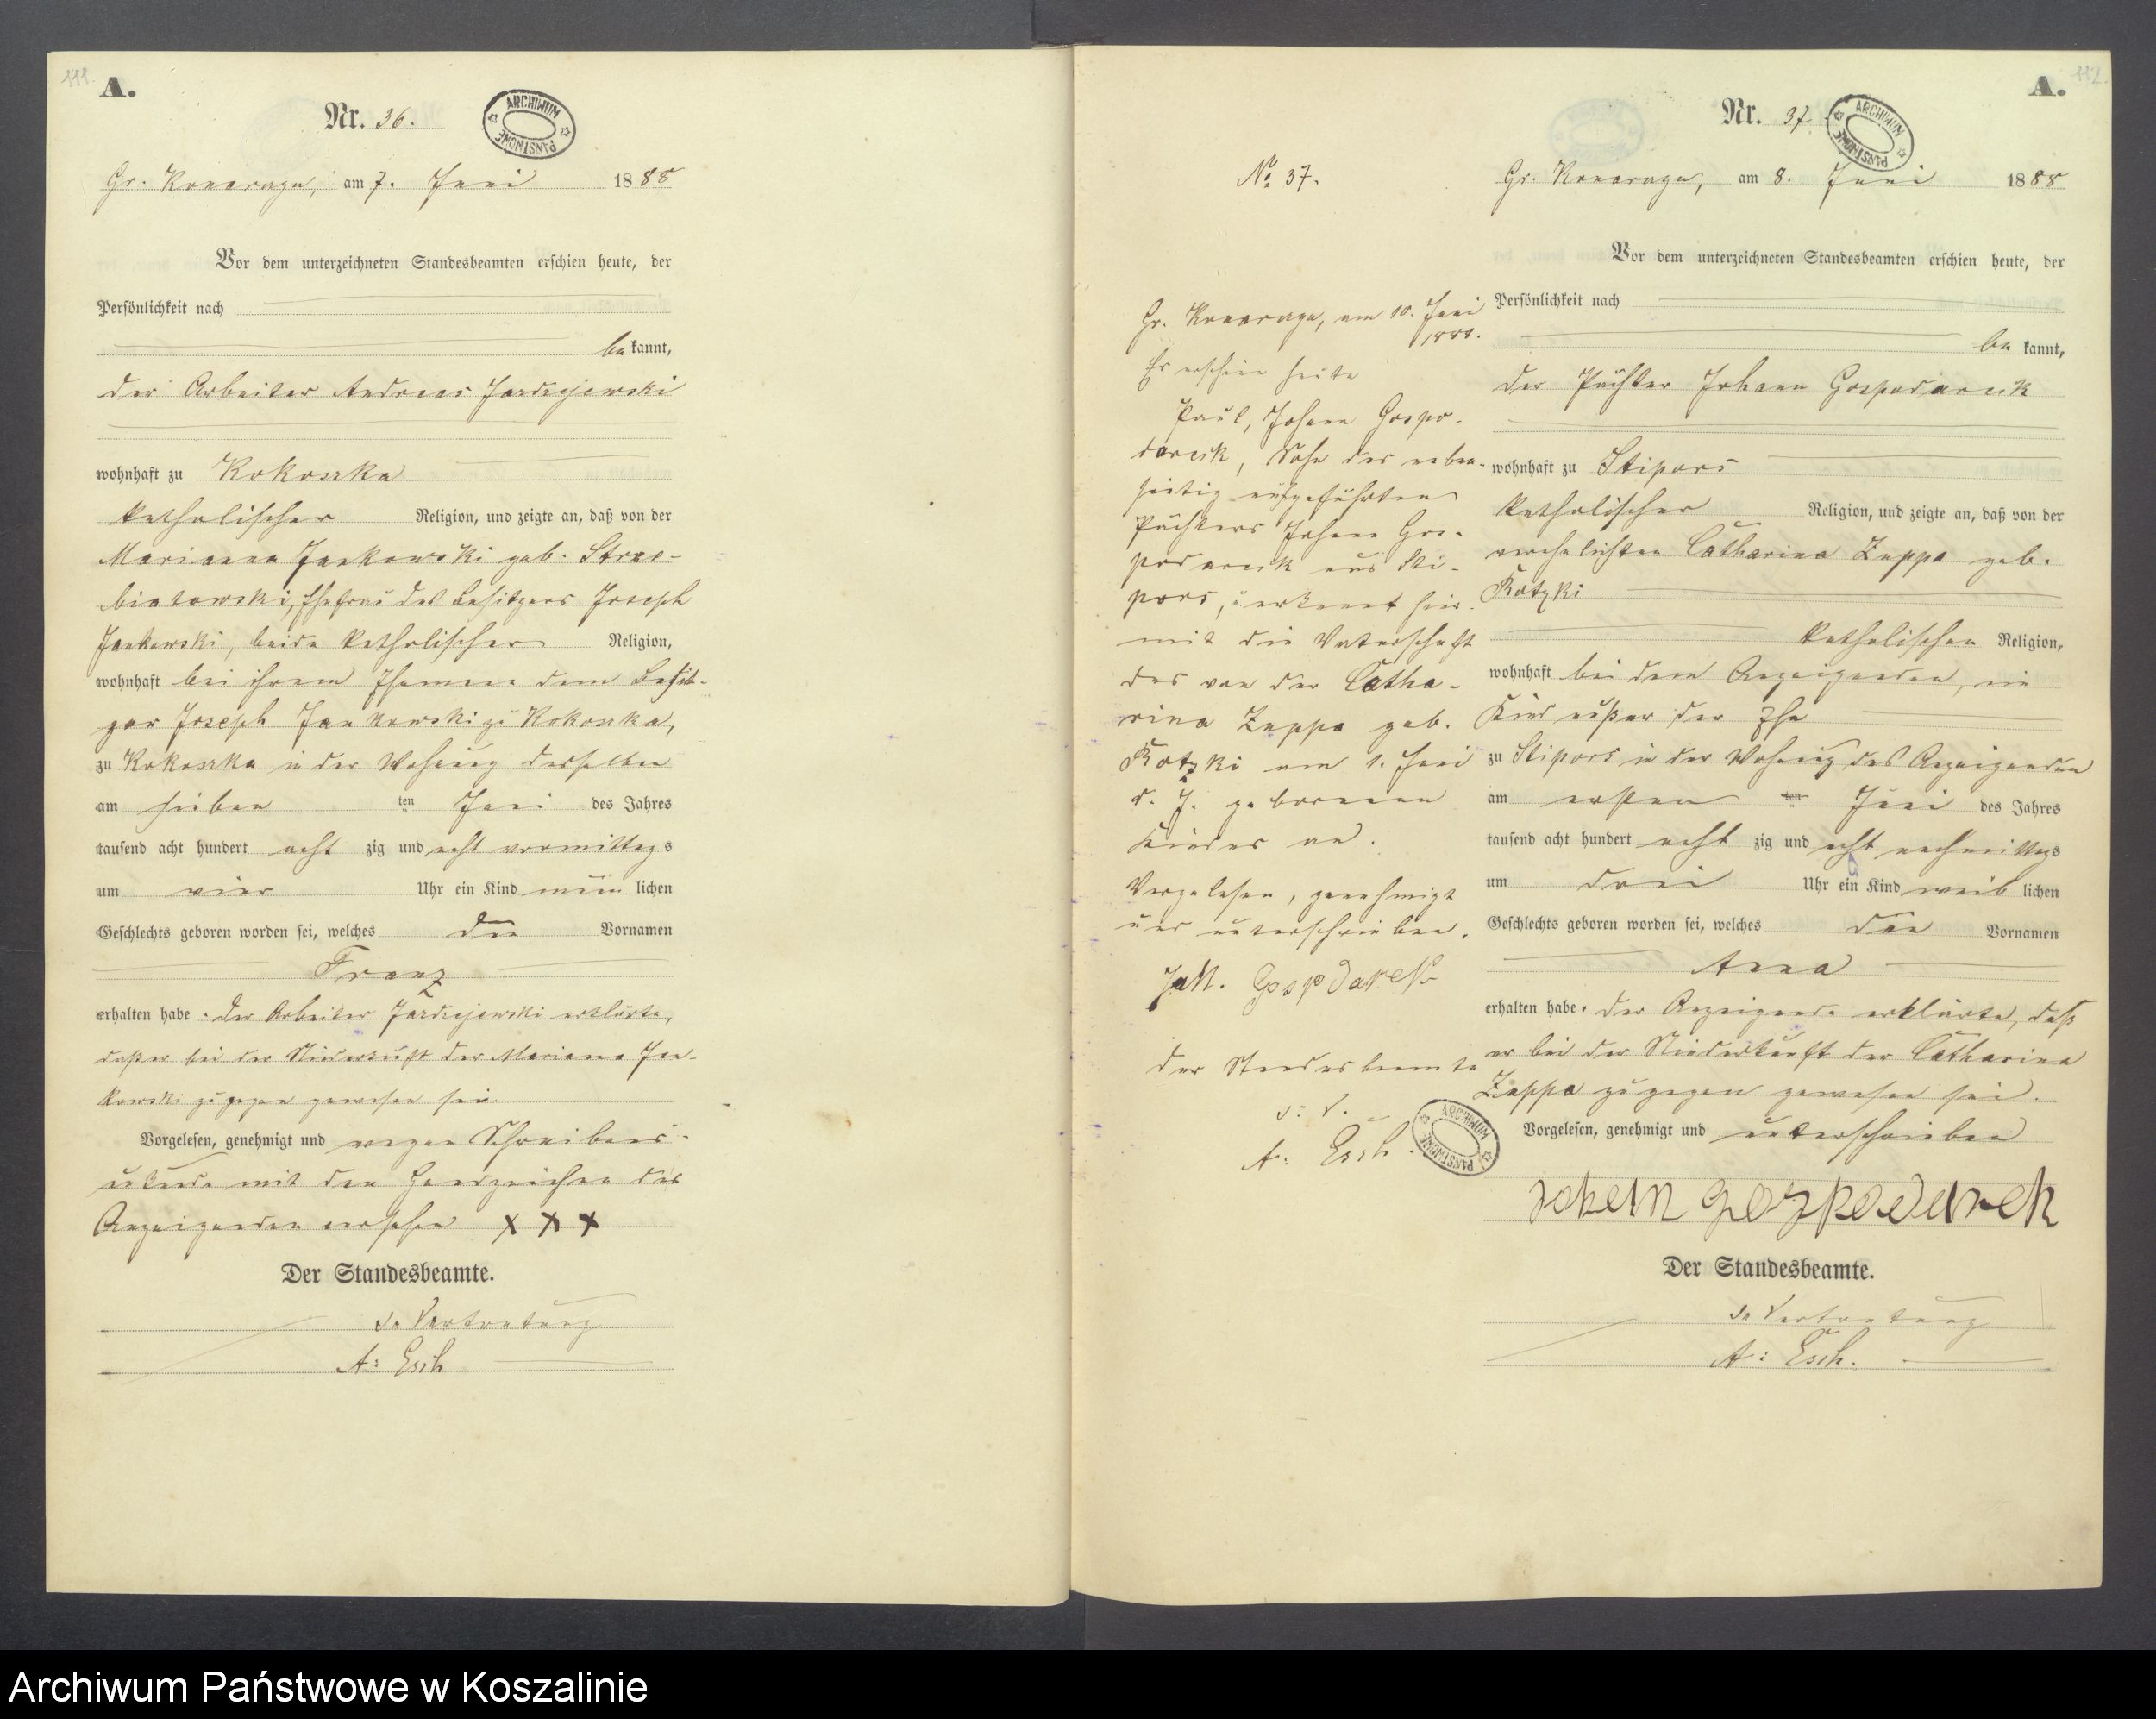 111.
A.
Nr. 36.
ARCHIWUM PAŃSTWOWE
Gr. Konarzyn, am 7. Juni 1888
Vor dem unterzeichneten Standesbeamten erschien heute, der
Persönlichkeit nach
bekannt,
der Arbeiter Andreas Jazdzejewski
wohnhaft zu Kokoszka
katholischer Religion, und zeigte an, daß von der
Marianna Jankowski geb. Stroe-
biatowski, Ehefrau des Besitzers Joseph
Jankowski, beide katholischer Religion,
wohnhaft bei ihrem Ehemann dem Besit-
zer Joseph Jankowski zu Kokoszka,
zu Kokoszka in der Wohnung desselben
am sieben ten Juni des Jahres
tausend acht hundert acht zig und acht vormittags
um vier Uhr ein Kind männlichen
Geschlechts geboren worden sei, welches den Vornamen
Franz
erhalten habe. Der Arbeiter Jazdzejewski erklärte,
daß er bei der Niederkunft der Marianna Jan-
kowski zugegen gewesen sei.
Vorgelesen, genehmigt und wegen Schreibens-
unkunde mit den Handzeichen des
Anzeigenden versehen X X X
Der Standesbeamte.
In Vertretung
A: Esch
112.
A.
Nr. 37
ARCHIWUM PAŃSTWOWE
Gr. Konarzyn, am 8. Juni 1888
Vor dem unterzeichneten Standesbeamten erschien heute, der
Persönlichkeit nach
bekannt,
der Pächter Johann Gospodarcik
wohnhaft zu Stipors
katholischer Religion, und zeigte an, daß von der
verehelichten Catharina Zuppa geb.
Kotzki
katholischer Religion,
wohnhaft bei dem Anzeigenden, ein
Kind außer der Ehe
zu Stipors in der Wohnung des Anzeigenden
am ersten ten Juni des Jahres
tausend acht hundert acht zig und acht nachmittags
um drei Uhr ein Kind weiblichen
Geschlechts geboren worden sei, welches den Vornamen
Anna
erhalten habe. Der Anzeigende erklärte, daß
er bei der Niederkunft der Catharina
Zuppa zugegen gewesen sei.
Vorgelesen, genehmigt und unterschrieben
Johann Gospodarek
Der Standesbeamte.
In Vertretung
A: Esch.
No 37.
Gr. Konarzyn, am 10. Juni
1888.
Es erschien heute
Paul, Johann Gospo-
darcik, Sohn des neben-
seitig aufgeführten
Pächters Johann Gos-
podarcik aus Sti-
pors, u. erkennt hier-
mit die Vaterschaft
des von der Catha-
rina Zuppa geb.
Kotzki am 1. Juni
d. J. geborenen
Kindes an.
Vorgelesen, genehmigt
und unterschrieben.
Joh. Gospodarek
Der Standesbeamte
i. V.
A: Esch.
ARCHIWUM PAŃSTWOWE
Archiwum Państwowe w Koszalinie